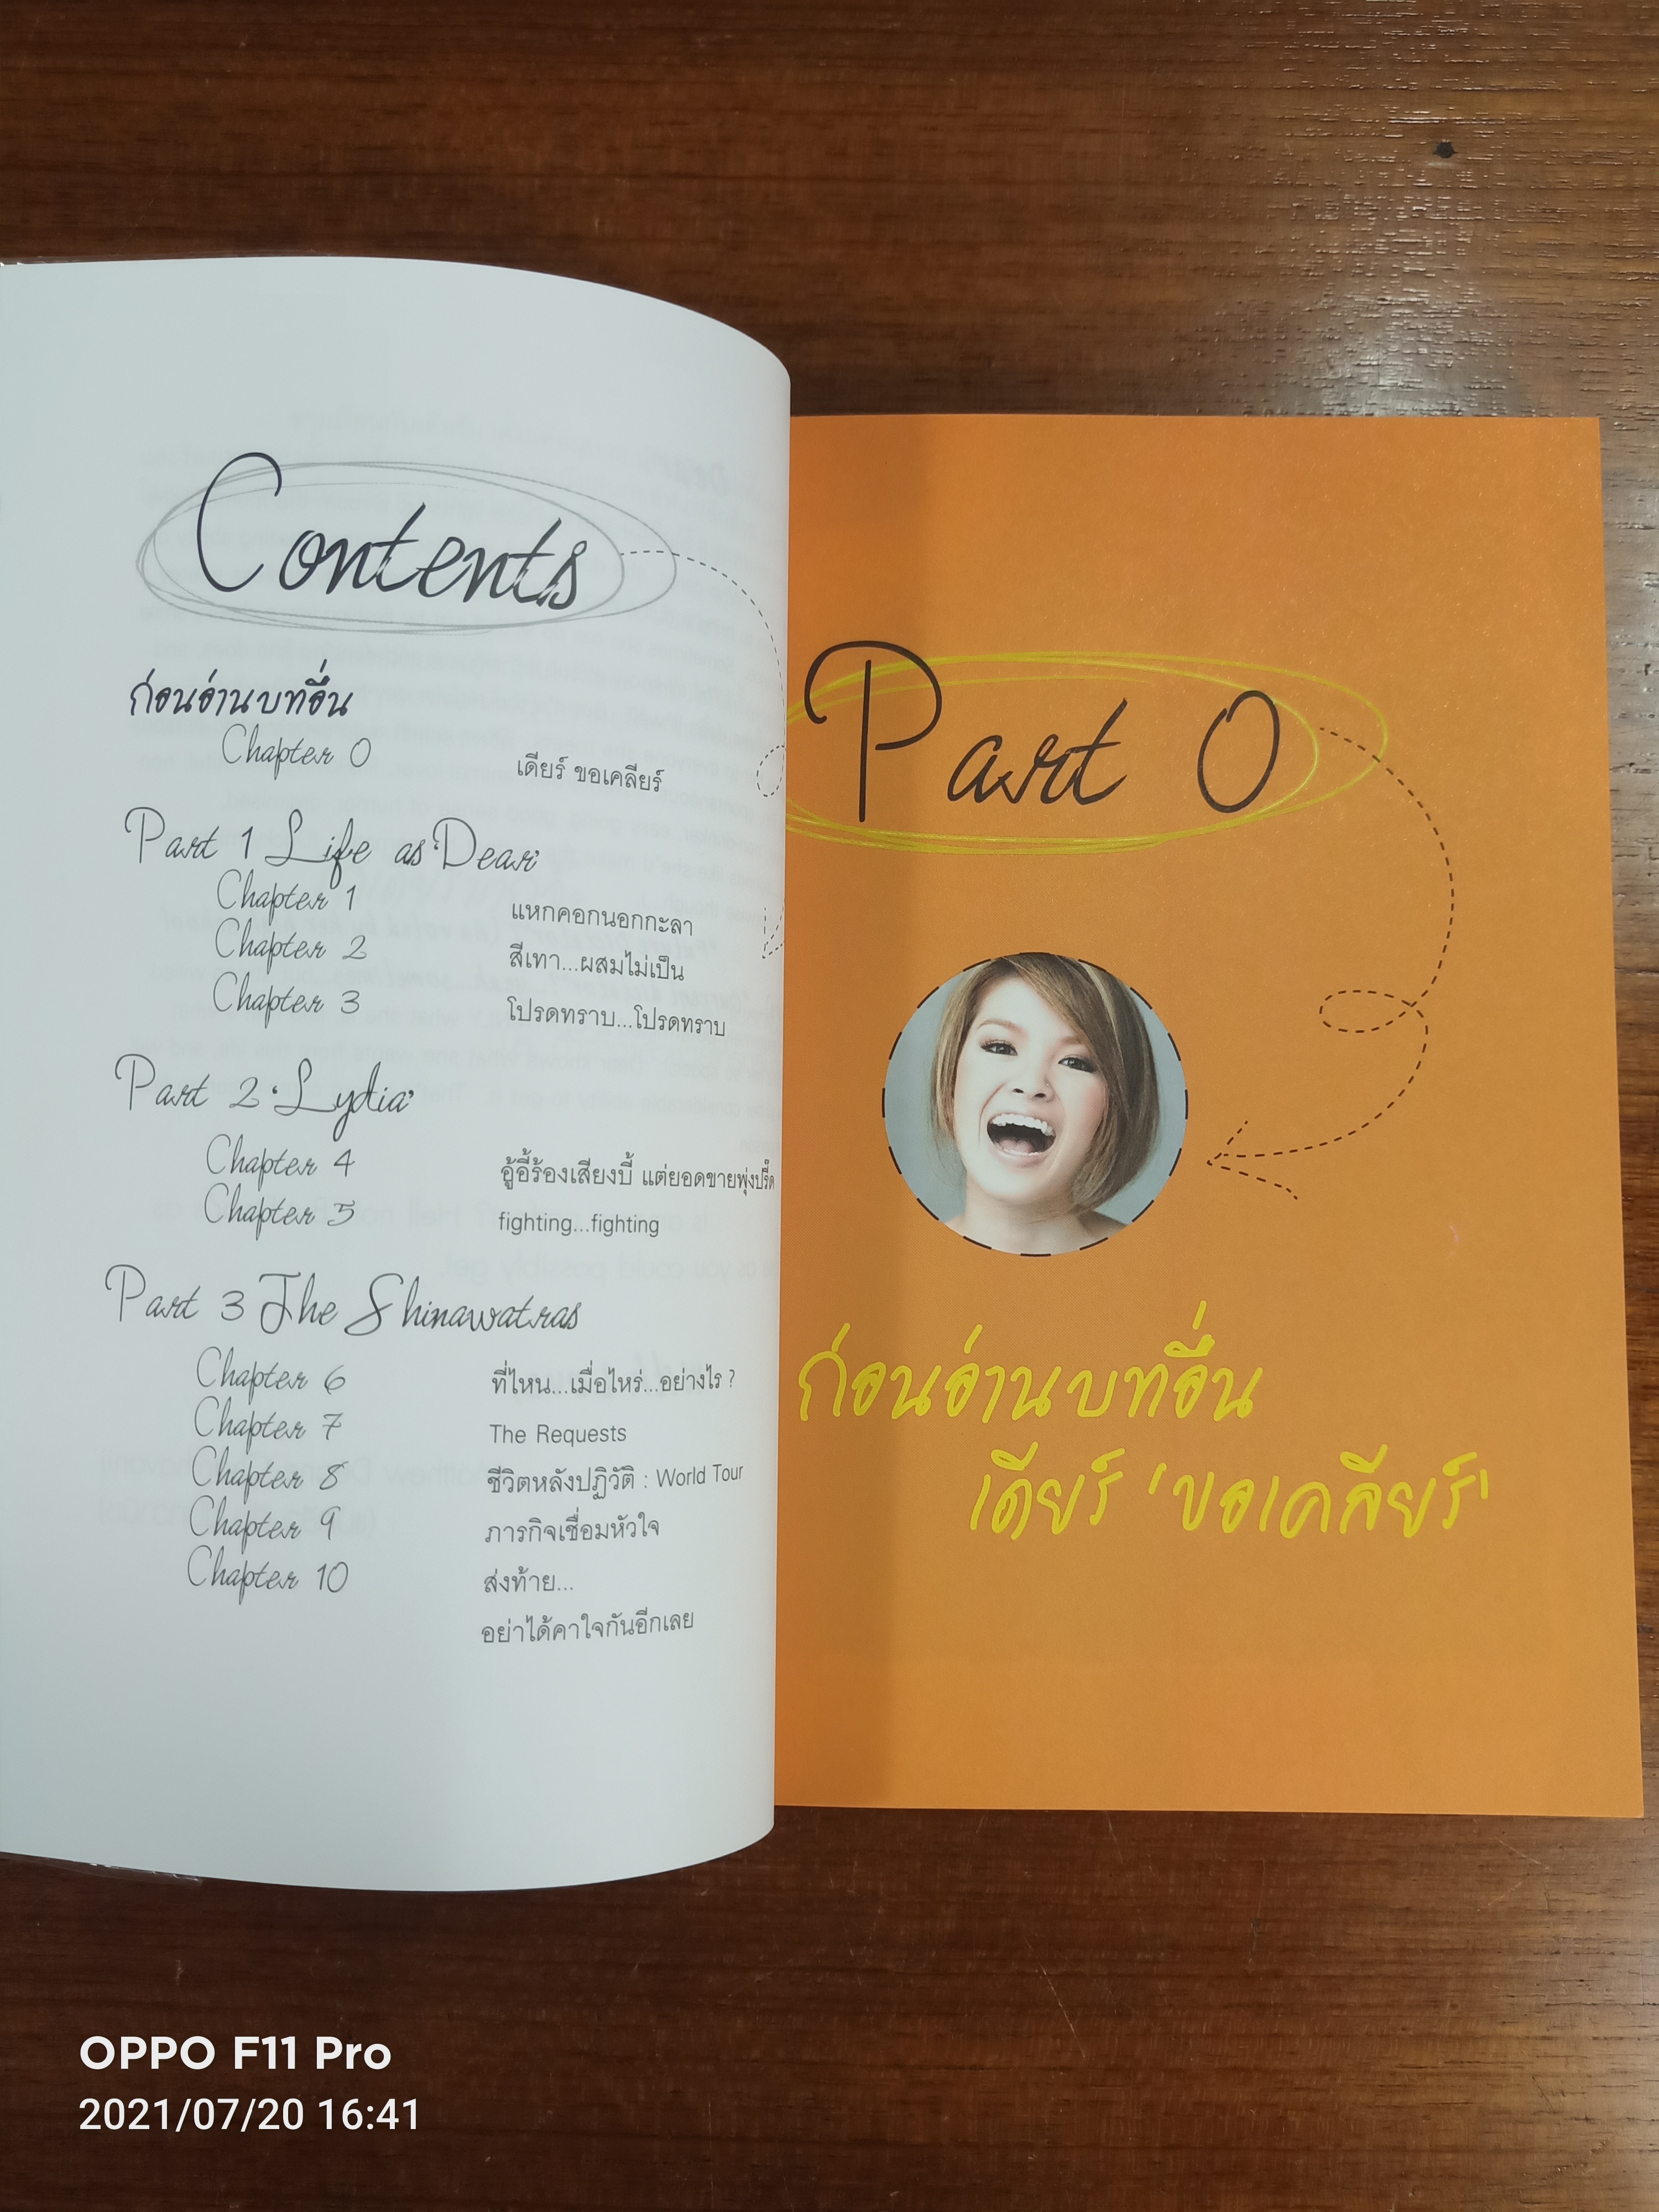 Contents
ก่อนอ่านบทอื่น
Chapter 0 เดียร์ ขอเคลียร์
Part 1 Life as 'Dear'
Chapter 1 แหกคอกนอกกะลา
Chapter 2 สีเทา...ผสมไม่เป็น
Chapter 3 โปรดทราบ...โปรดทราบ
Part 2 'Lydia'
Chapter 4 อู้อี้ร้องเสียงบี้ แต่ยอดขายพุ่งปรี๊ด
Chapter 5 fighting...fighting
Part 3 The Shinawatras
Chapter 6 ที่ไหน...เมื่อไหร่...อย่างไร ?
Chapter 7 The Requests
Chapter 8 ชีวิตหลังปฏิวัติ : World Tour
Chapter 9 ภารกิจเชื่อมหัวใจ
Chapter 10 ส่งท้าย...
อย่าได้คาใจกันอีกเลย
Part 0
ก่อนอ่านบทอื่น
เดียร์ 'ขอเคลียร์'
OPPO F11 Pro
2021/07/20 16:41